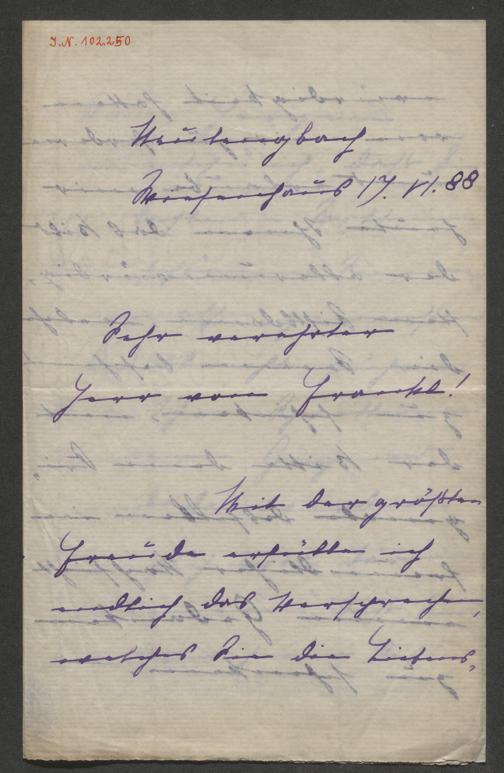 I.N. 102.250
Neulengbach
Wiesenhaus 17. VI. 88
Sehr verehrter
Herr von Frankl!
Mit der größten
Freude erfülle ich
endlich das Versprechen,
welches Sie die Liebens,